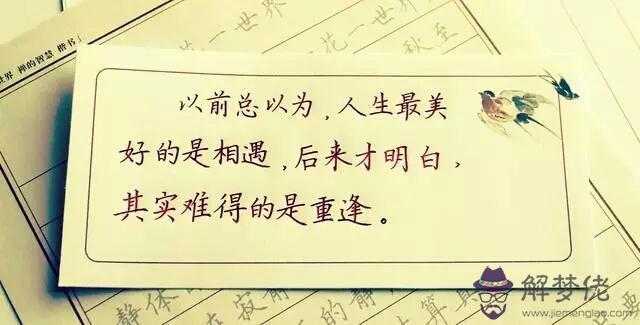 一世界
花一世界
秋至
世界 禅的智慧 楷书」
以前总以为，人生最美
好的是相遇，后来才明白，
其实难得的是重逢。
静体的
在寂静
的静
算典
解梦佬
www.jiemenglao.com